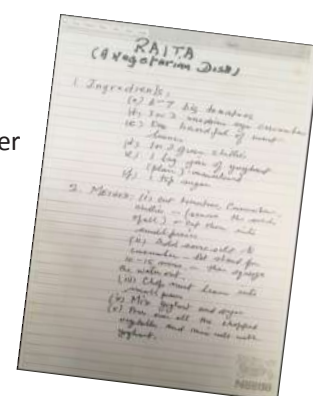 er
RAITA
(A Vegetarian Dish)
1. Ingredients:
(a) 6-7 big tomatoes
(b) 1 or 2 medium size cucumber
(c) Two handful of mint
leaves
(d) 1 or 2 green chillies
(e) 1 big jar of yoghurt
(plain) -
(f) 1 tsp sugar
2. Method: (i) Cut tomatoes Cucumber
chillies - (remove the seeds
of all) - cut them into
small pieces
(ii) Add some salt to
cucumber - let stand for
10-15 - then squeeze
the water out.
(iii) Chop mint leaves into
small pieces
(iv) Mix yoghurt and sugar
(v) Pour over all the chopped
vegetables and mix with
yoghurt.